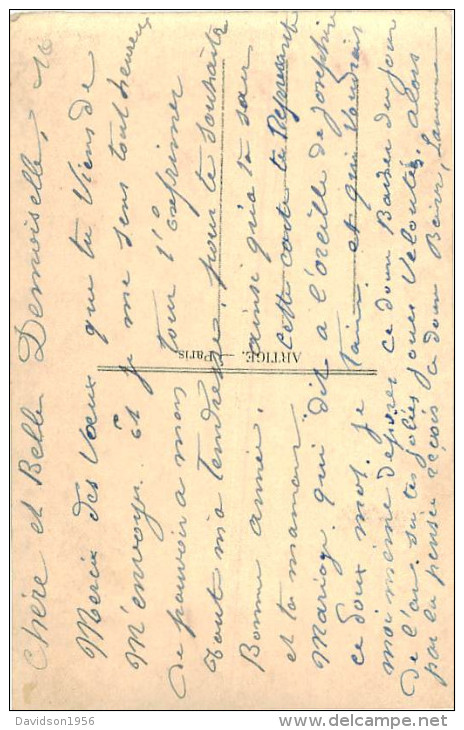 Chère et Belle Demoiselle,
Merci des Vœux que tu Viens de
M'envoyer. Et je me sens tout heureux
de pouvoir a mon tour t'exprimer
tout ma tendresse, pour te souhaiter
Bonne année, ainsi qu'a ta sœur
et ta maman cette carte te Représente
Mariage. qui dit a l'oreille de Josephine
ce doux mot. je t'aim. et qui Voudrait
moi même déposer ce doux Baiser du jour
de l'an. su tes jolies joues Veloutés, alors
par la pensée reçois ce doux Baiser,
ARTIGE. — Paris.
Davidson1956